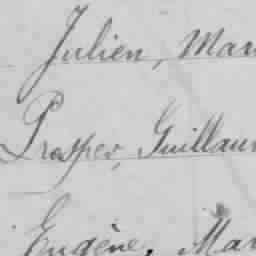 Julien, Mari
Prosper, Guillaum
Eugène, Mar